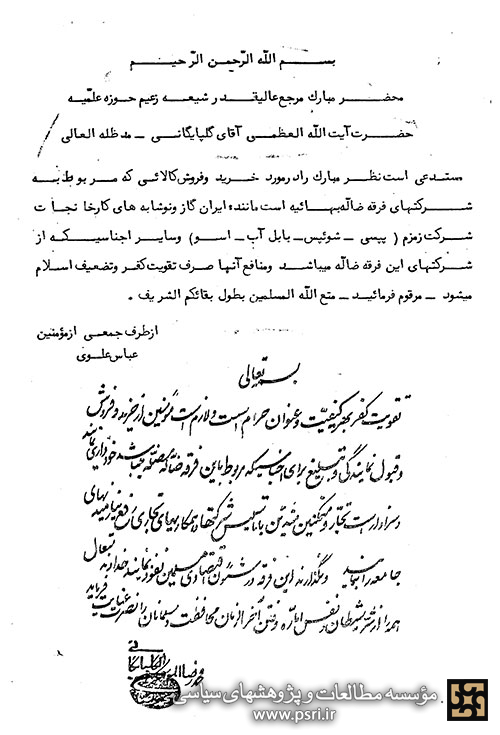 بســـم الله الرّحمن الرّحیـــم
محضـــر مبارک مرجع عالیقـــدر شیعـــه زعیم حــوزه علمّیــه
حضــرت آیت الله العظمــی آقای گلپایگانــی ـ مد ظله العالی
مستــدعی است نظــر مبارک را در مورد خریــد و فروش کالائــی که مــربوط بــه
شرکتهای فرقه ضاله بهائیه است مانند، ایران گاز و نوشابه های کارخا نجا ت
شرکت زمزم ( پپسی ـ شوئپس ـ بابل آپ ـ اســو ) و سایر اجناسیکــه از
شرکتهای این فرقه ضاله میباشــد و منافع آنها صرف تقویت کفر و تضعیف اسلام
میشود ـ مرقوم فرمائید ـ متع الله المسلمین بطول بقائکم الشریف .
از طرف جمعی از مؤمنین
عباس علــوی
بسمه تعالی
تقویت کفر بهر کیفیت و عنوان حرام است و لازم است مؤمنین از خرید و فروش
و قبول نمایندگی و تبلیغ برای اجناسیکه مربوط باین فرقه ضاله مضله میباشد خودداری نمایند
و سزاوار است تجار و متمکنین با تأسیس شرکتها و همکاریهای تجاری رفع نیازمندیهای
جامعه را بنمایند و نگذارند این فرقه در شئون اقتصادی مسلمین نفوذ نمایند خداوند متعال
همه را از شر شیطان و نفس اماره و فتن آخر الزمان محافظت و مسلمانان را نصرت عنایت فرماید
مؤسسه مطالعات و پژوهشهای سیاسی
www.psri.ir